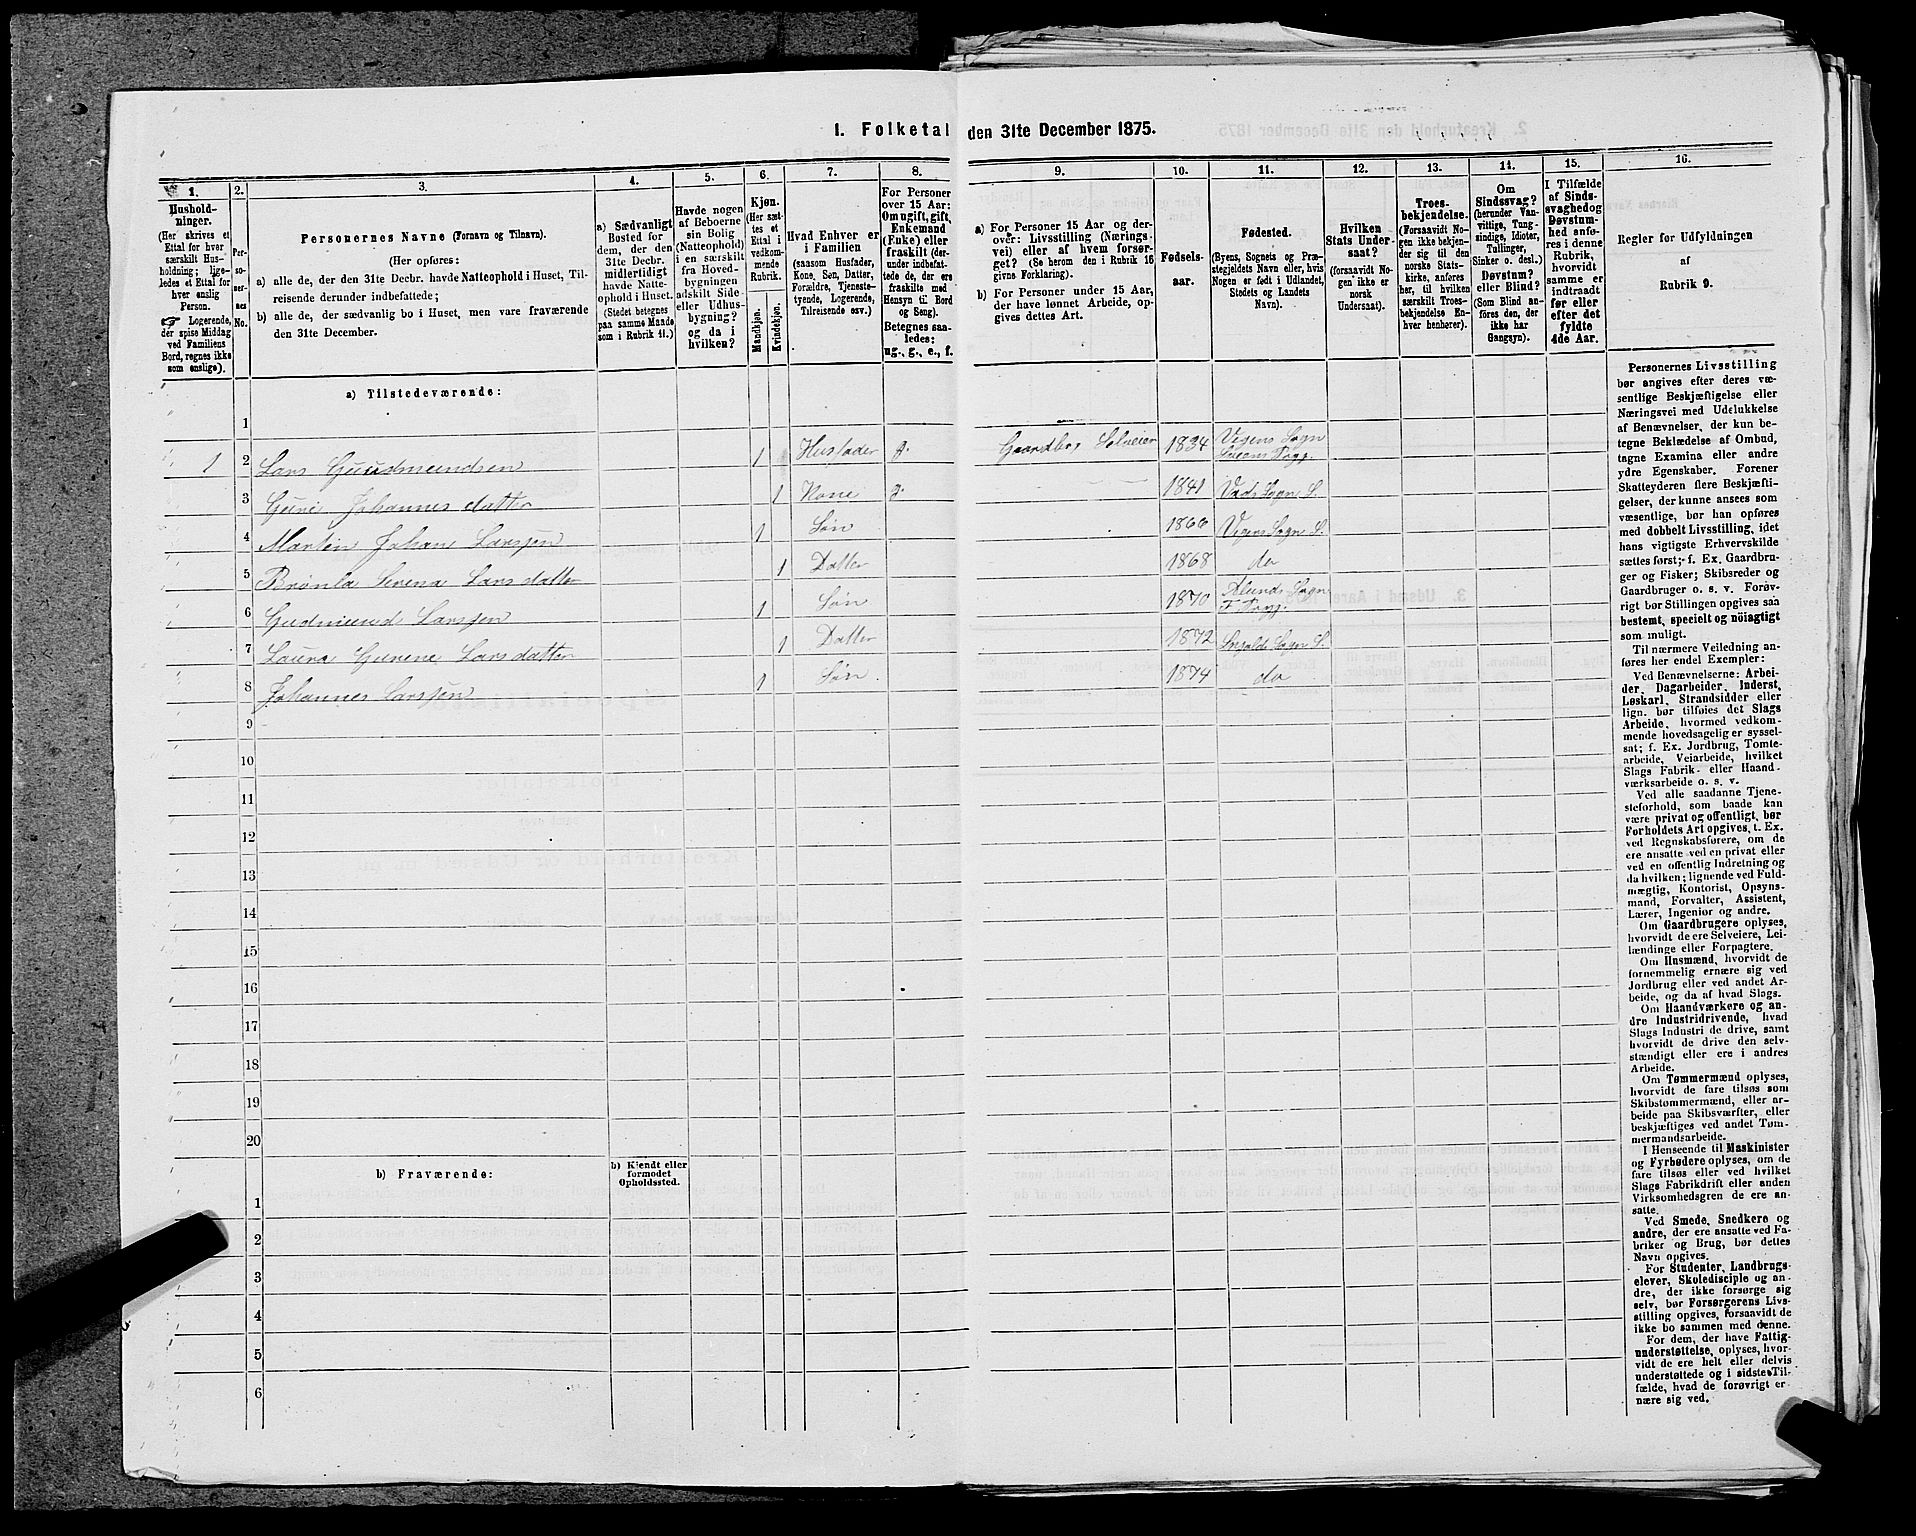 I. Folketal den 31te December 1875.
1.
2.
3.
4.
5.
6.
7.
8.
9.
10.
11.
12.
13.
14.
15.
16.
Hushold-
ninger.
(Her skrives et
Ettal for hver
særskilt Hus-
holdning; lige-
ledes et Ettal for
hver enslig
Person.
☞ Logerende,
der spise Middag
ved Familiens
Bord, regnes ikke
som enslige).
Per-
so-
ner-
nes
No.
Personernes Navne (Fornavn og Tilnavn).
(Her opføres:
a) alle de, der den 31te Decbr. havde Natteophold i Huset, Til-
reisende derunder indbefattede;
b) alle de, der sædvanlig bo i Huset, men vare fraværende
den 31te December.
a) Sædvanligt
Bosted for
dem, der den
31te Decbr.
midlertidigt
havde Natte-
ophold i Huset.
(Stedet betegnes
paa samme Maade
som i Rubrik 11.)
Havde nogen
af Beboerne
sin Bolig
(Natteophold)
i en særskilt
fra Hoved-
bygningen
adskilt Side
eller Udhus-
bygning?
og da i
hvilken?
Kjøn.
(Her sæt-
tes et
Ettal i
vedkom-
mende
Rubrik.
Mandkjøn.
Kvindekjøn.
Hvad Enhver er
i Familien
(saasom Husfader,
Kone, Søn, Datter,
Forældre, Tjeneste-
tyende, Logerende,
Tilreisende osv.)
For Personer
over 15 Aar:
Om ugift, gift,
Enkemand
(Enke) eller
fraskilt (der-
under indbefat-
tede de, der ere
fraskilte med
Hensyn til Bord
og Seng).
Betegnes saa-
ledes:
ug., g., e., f.
a) For Personer 15 Aar og der-
over: Livsstilling (Nærings-
vei) eller af hvem forsør-
get? (Se herom den i Rubrik 16
givne Forklaring).
b) For Personer under 15 Aar,
der have lønnet Arbeide, op-
gives dettes Art.
Fødsels-
aar.
Fødested.
(Byens, Sognets og Præ-
stegjeldets Navn eller, hvis
Nogen er født i Udlandet,
Stedets og Landets
Navn).
Hvilken
Stats Under-
saat?
(forsaavidt No-
gen ikke er
norsk
Undersaat).
Troes-
bekjendelse.
(Forsaavidt No-
gen ikke bekjen-
der sig til den
norske Stats-
kirke, anføres
her, til hvilken
særskilt Troes-
bekjendelse En-
hver henhører).
Om
Sindssvag?
(herunder Van-
vittige, Tung-
sindige, Idioter,
Tullinger,
Sinker o. desl.)
Døvstum?
eller Blind?
(Som Blind an-
føres den, der
ikke har
Gangsyn).
I Tilfælde
af Sinds-
svaghed og
Døvstum-
hed anfø-
res i denne
Rubrik,
hvorvidt
samme er
indtraadt
før eller
efter det
fyldte
4de Aar.
Regler for Udfyldningen
af
Rubrik 9.
a) Tilstedeværende:
1
1 2 Lars Gudmundsen 1 Husfader g. Gaardbr. Selveier 1834 Vegens Sogn
3 Johannesdatter 1 Kone g. 1841 S.
4 Martin Johan Larssen 1 Søn 1866 Vegens Sogn S.
5 Serena Larsdatter 1 Datter 1868 do
6 Gudmund Larssen 1 Søn 1870 Sogn
7 Laura Larsdatter 1 Datter 1872 Sogn S.
8 Johannes Larssen 1 Søn 1874 do
9
10
11
12
13
14
15
16
17
18
19
20
b) Fraværende:
b) Kjendt eller
formodet
Opholdssted.
1
2
3
4
5
6
Personernes Livsstilling
bør angives efter deres væ-
sentlige Beskjæftigelse eller
Næringsvei med Udelukkelse
af Benævnelser, der kun be-
tegne Beklædelse af Ombud,
tagne Examina eller andre
ydre Egenskaber. Forener
Skatteyderen flere Beskjæfti-
gelser, der kunne ansees som
væsentlige, bør han opføres
med dobbelt Livsstilling, idet
hans vigtigste Erhvervskilde
sættes først; f. Ex. Gaardbru-
ger og Fisker; Skibsreder og
Gaardbruger o. s. v. Forøv-
rigt bør Stillingen opgives saa
bestemt, specielt og nöiagtigt
som muligt.
Til nærmere Veiledning an-
føres her endel Exempler:
Ved Benævnelserne: Arbei-
der, Dagarbeider, Inderst,
Løskarl, Strandsidder eller
lign. bør tilføies det Slags
Arbeide, hvormed vedkom-
mende hovedsagelig er syssel-
sat; f. Ex. Jordbrug, Tomte-
arbeide, Veiarbeide, hvilket
Slags Fabrik- eller Haand-
værksarbeide o. s. v.
Ved alle saadanne Tjene-
steforhold, som baade kan
være privat og offentligt, bør
Forholdets Art opgives, t. Ex.
ved Regnskabsførere, om de
ere ansatte ved en privat eller
ved en offentlig Indretning og
da hvilken; lignende ved Fuld-
mægtig, Kontorist, Opsyns-
mand, Forvalter, Assistent,
Lærer, Ingeniør og andre.
Om Gaardbrugere oplyses,
hvorvidt de ere Selveiere, Lei-
lændinge eller Forpagtere.
Om Husmænd, hvorvidt de
fornemmelig ernære sig ved
Jordbrug eller ved andet Ar-
beide, og da af hvad Slags.
Om Haandværkere og an-
dre Industridrivende, hvad
Slags Industri de drive, samt
hvorvidt de drive den selv-
stændigt eller ere i andres
Arbeide.
Om Tømmermænd oplyses,
hvorvidt de fare tilsøs som
Skibstømmermænd, eller ar-
beide paa Skibsværfter, eller
beskjæftiges ved andet Tøm-
mermandsarbeide.
I Henseende til Maskinister
og Fyrbødere oplyses, om de
fare tilsøs eller ved hvilket
Slags Fabrikdrift eller anden
Virksomhedsgren de ere an-
satte.
Ved Smede, Snedkere og
andre, der ere ansatte ved Fa-
briker og Brug, bør dettes
Navn opgives.
For Studenter, Landbrugs-
elever, Skoledisciple og an-
dre, der ikke forsørge sig
selv, bør Forsørgerens Livs-
stilling opgives, forsaavidt de
ikke bo sammen med denne.
For dem, der have Fattig-
understøttelse, oplyses, hvor-
vidt de ere helt eller delvis
understøttede og i sidste Til-
fælde, hvad de forøvrigt er-
nære sig ved.